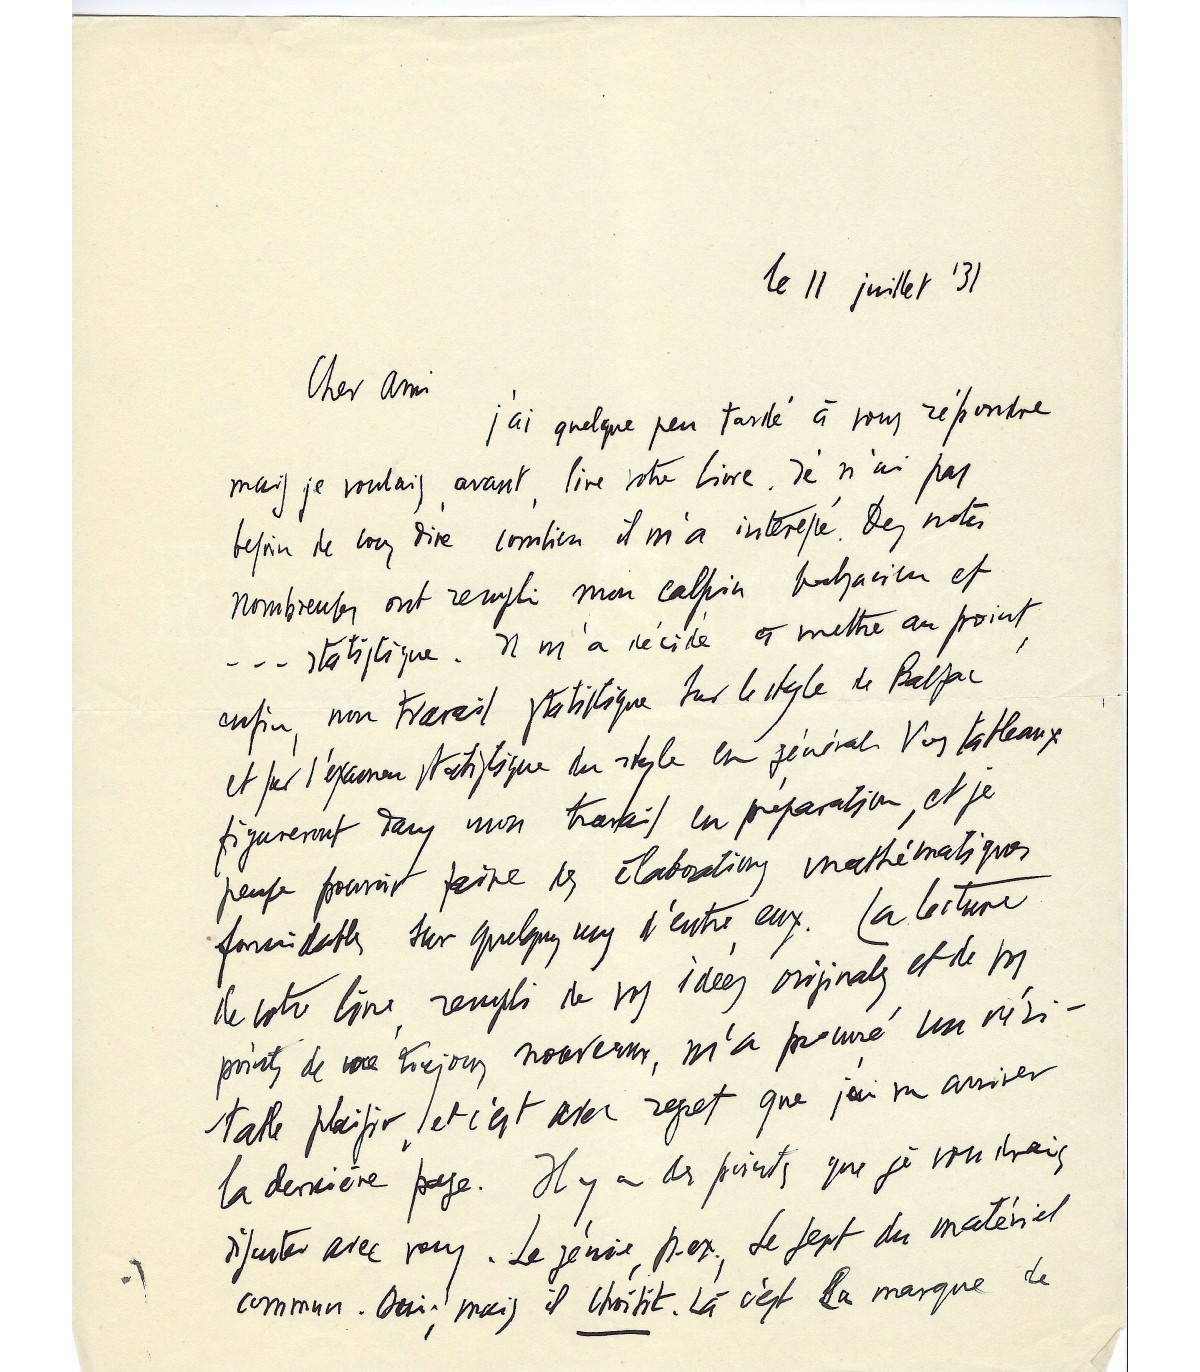 le 11 juillet '31
Cher Ami
j'ai quelque peu tardé à vous répondre
mais je voulais, avant, lire votre livre. Je n'ai pas
besoin de vous dire combien il m'a intéressé. Des notes
nombreuses ont rempli mon calepin balzacien et
--- statistique. Il m'a décidé à mettre au point,
enfin, mon travail statistique sur le style de Balzac
et sur l'examen statistique du style en général. Vos tableaux
figureront dans mon travail en préparation, et je
pense pouvoir faire des élaborations mathématiques
formidables sur quelques uns d'entre eux. La lecture
de votre livre, rempli de vos idées originales et de vos
points de vue toujours nouveaux, m'a procuré un véri-
table plaisir, et c'est avec regret que j'ai vu arriver
la dernière page. Il y a des points que je voudrais
discuter avec vous. Le génie, p. ex., se sert du matériel
commun. Oui, mais il choisit. Là c'est la marque de